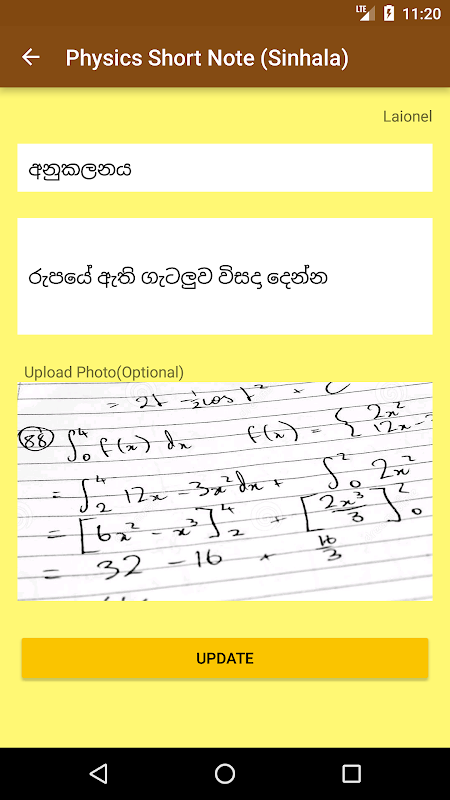 LTE 11:20
Physics Short Note (Sinhala)
Laionel
අනුකලනය
රුපයේ ඇති ගැටලුව විසදා දෙන්න
Upload Photo(Optional)
= 2t - ½cos t² + C
88 ∫₀⁴ f(x) dx f(x) = { 2x²
12x -
= ∫₂⁴ 12x - 3x² dx + ∫₀² 2x²
= [6x² - x³]₂⁴ + [2x³/3]₀²
= 32 - 16 + 16/3
UPDATE